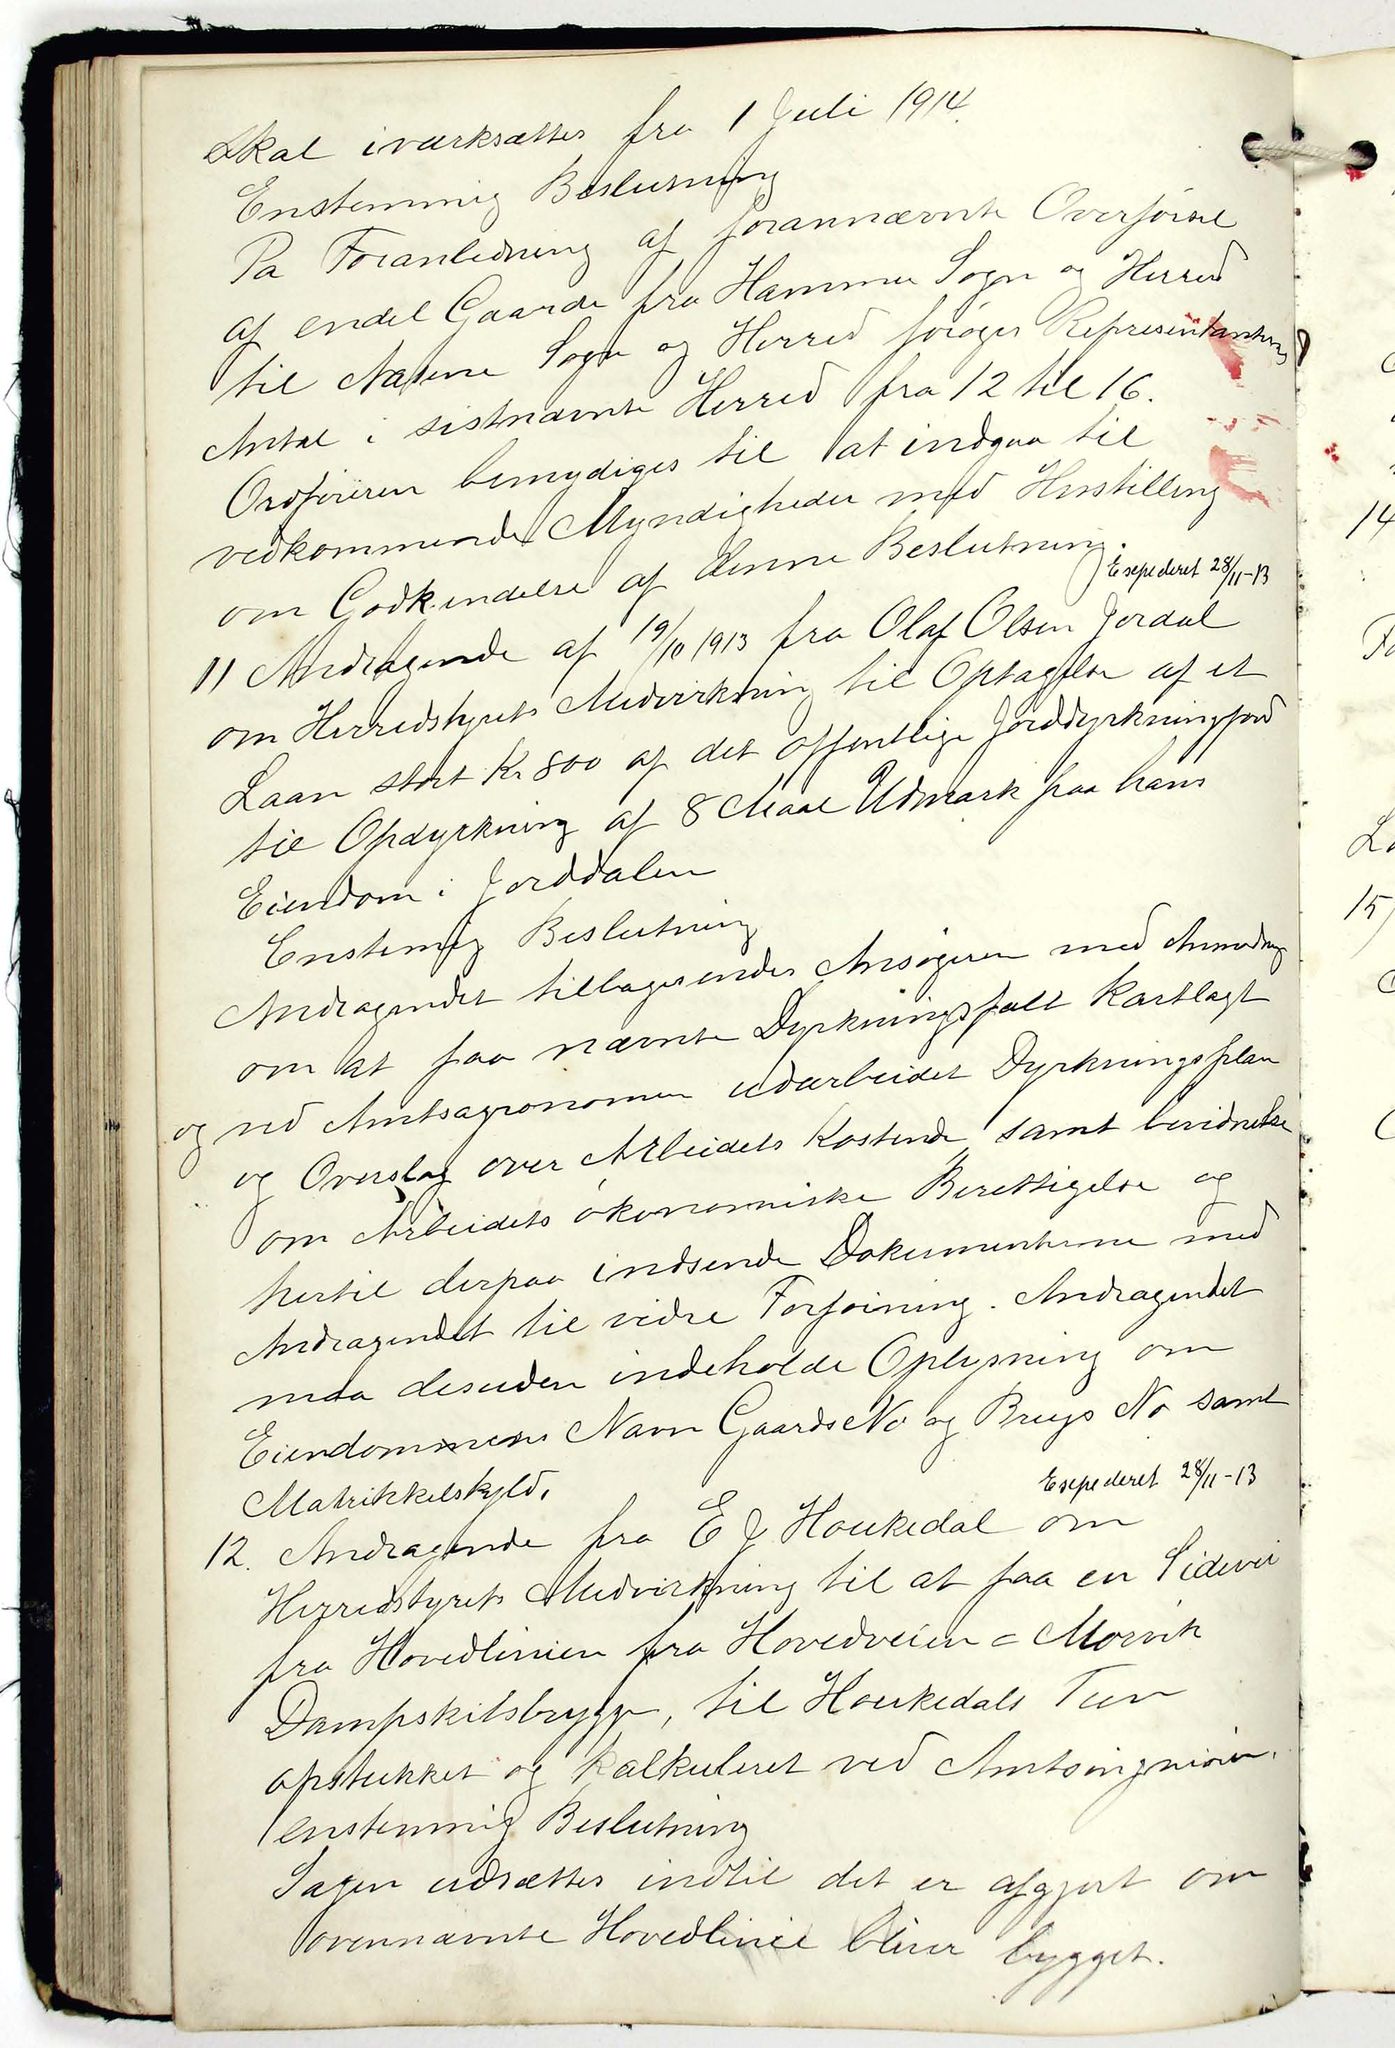 skal iværksættes fra 1 Juli 1914.
Enstemmig Beslutning
Pa Foranledning af forannævnte Overførsel
af endel Gaarde fra Hammer Sogn og Herred
til Aasene Sogn og Herred forøges Representanternes
Antal i sistnævnte Herred fra 12 til 16.
Ordføreren bemydiges til at indgaa til
vedkommende Myndigheder med Henstilling
om Godkjendelse af denne Beslutning.
Exepederet 28/11-13
11 Andragende af 19/10 1913 fra Olaf Olsen Jordal
om Herredstyrets Medvirkning til Optagelse af et
Laan stort Kr 800 af det offentlige Jorddyrkningsfond
til Opdyrkning af 8 Maal Udmark paa hans
Eiendom i Jorddalen
Enstemig Beslutning
Andragendet tilbagesendes Ansøgeren med Anmodning
om at faa nævnte Dyrkningsfelt kartlagt
og ved Amtsagronomen udarbeidet Dyrkningsplan
og Overslag over Arbeidets Kostende samt bevidnelse
om Arbeidets økonomiske Berettigelse og
hertil derpaa indsende Dokumenterne med
Andragendet til vidre Forføining. Andragendet
maa desuden indeholde Oplysning om
Eiendommens Navn Gaards No og Brugs No samt
Matrikkelskyld.
Exepederet 28/11-13
12. Andragende fra E J Houkedal om
Herredstyrets Medvirkning til at faa en Sidevei
fra Hovedlinien fra Hovedveien = Morvik
Dampskibsbrygge, til Houkedals Tun
opstukket og kalkuleret ved Amtsingniøren.
enstemmig Beslutning
Sagen udsættes indtil det er afgjort om
ovennævnte Hovedlinie bliver bygget.